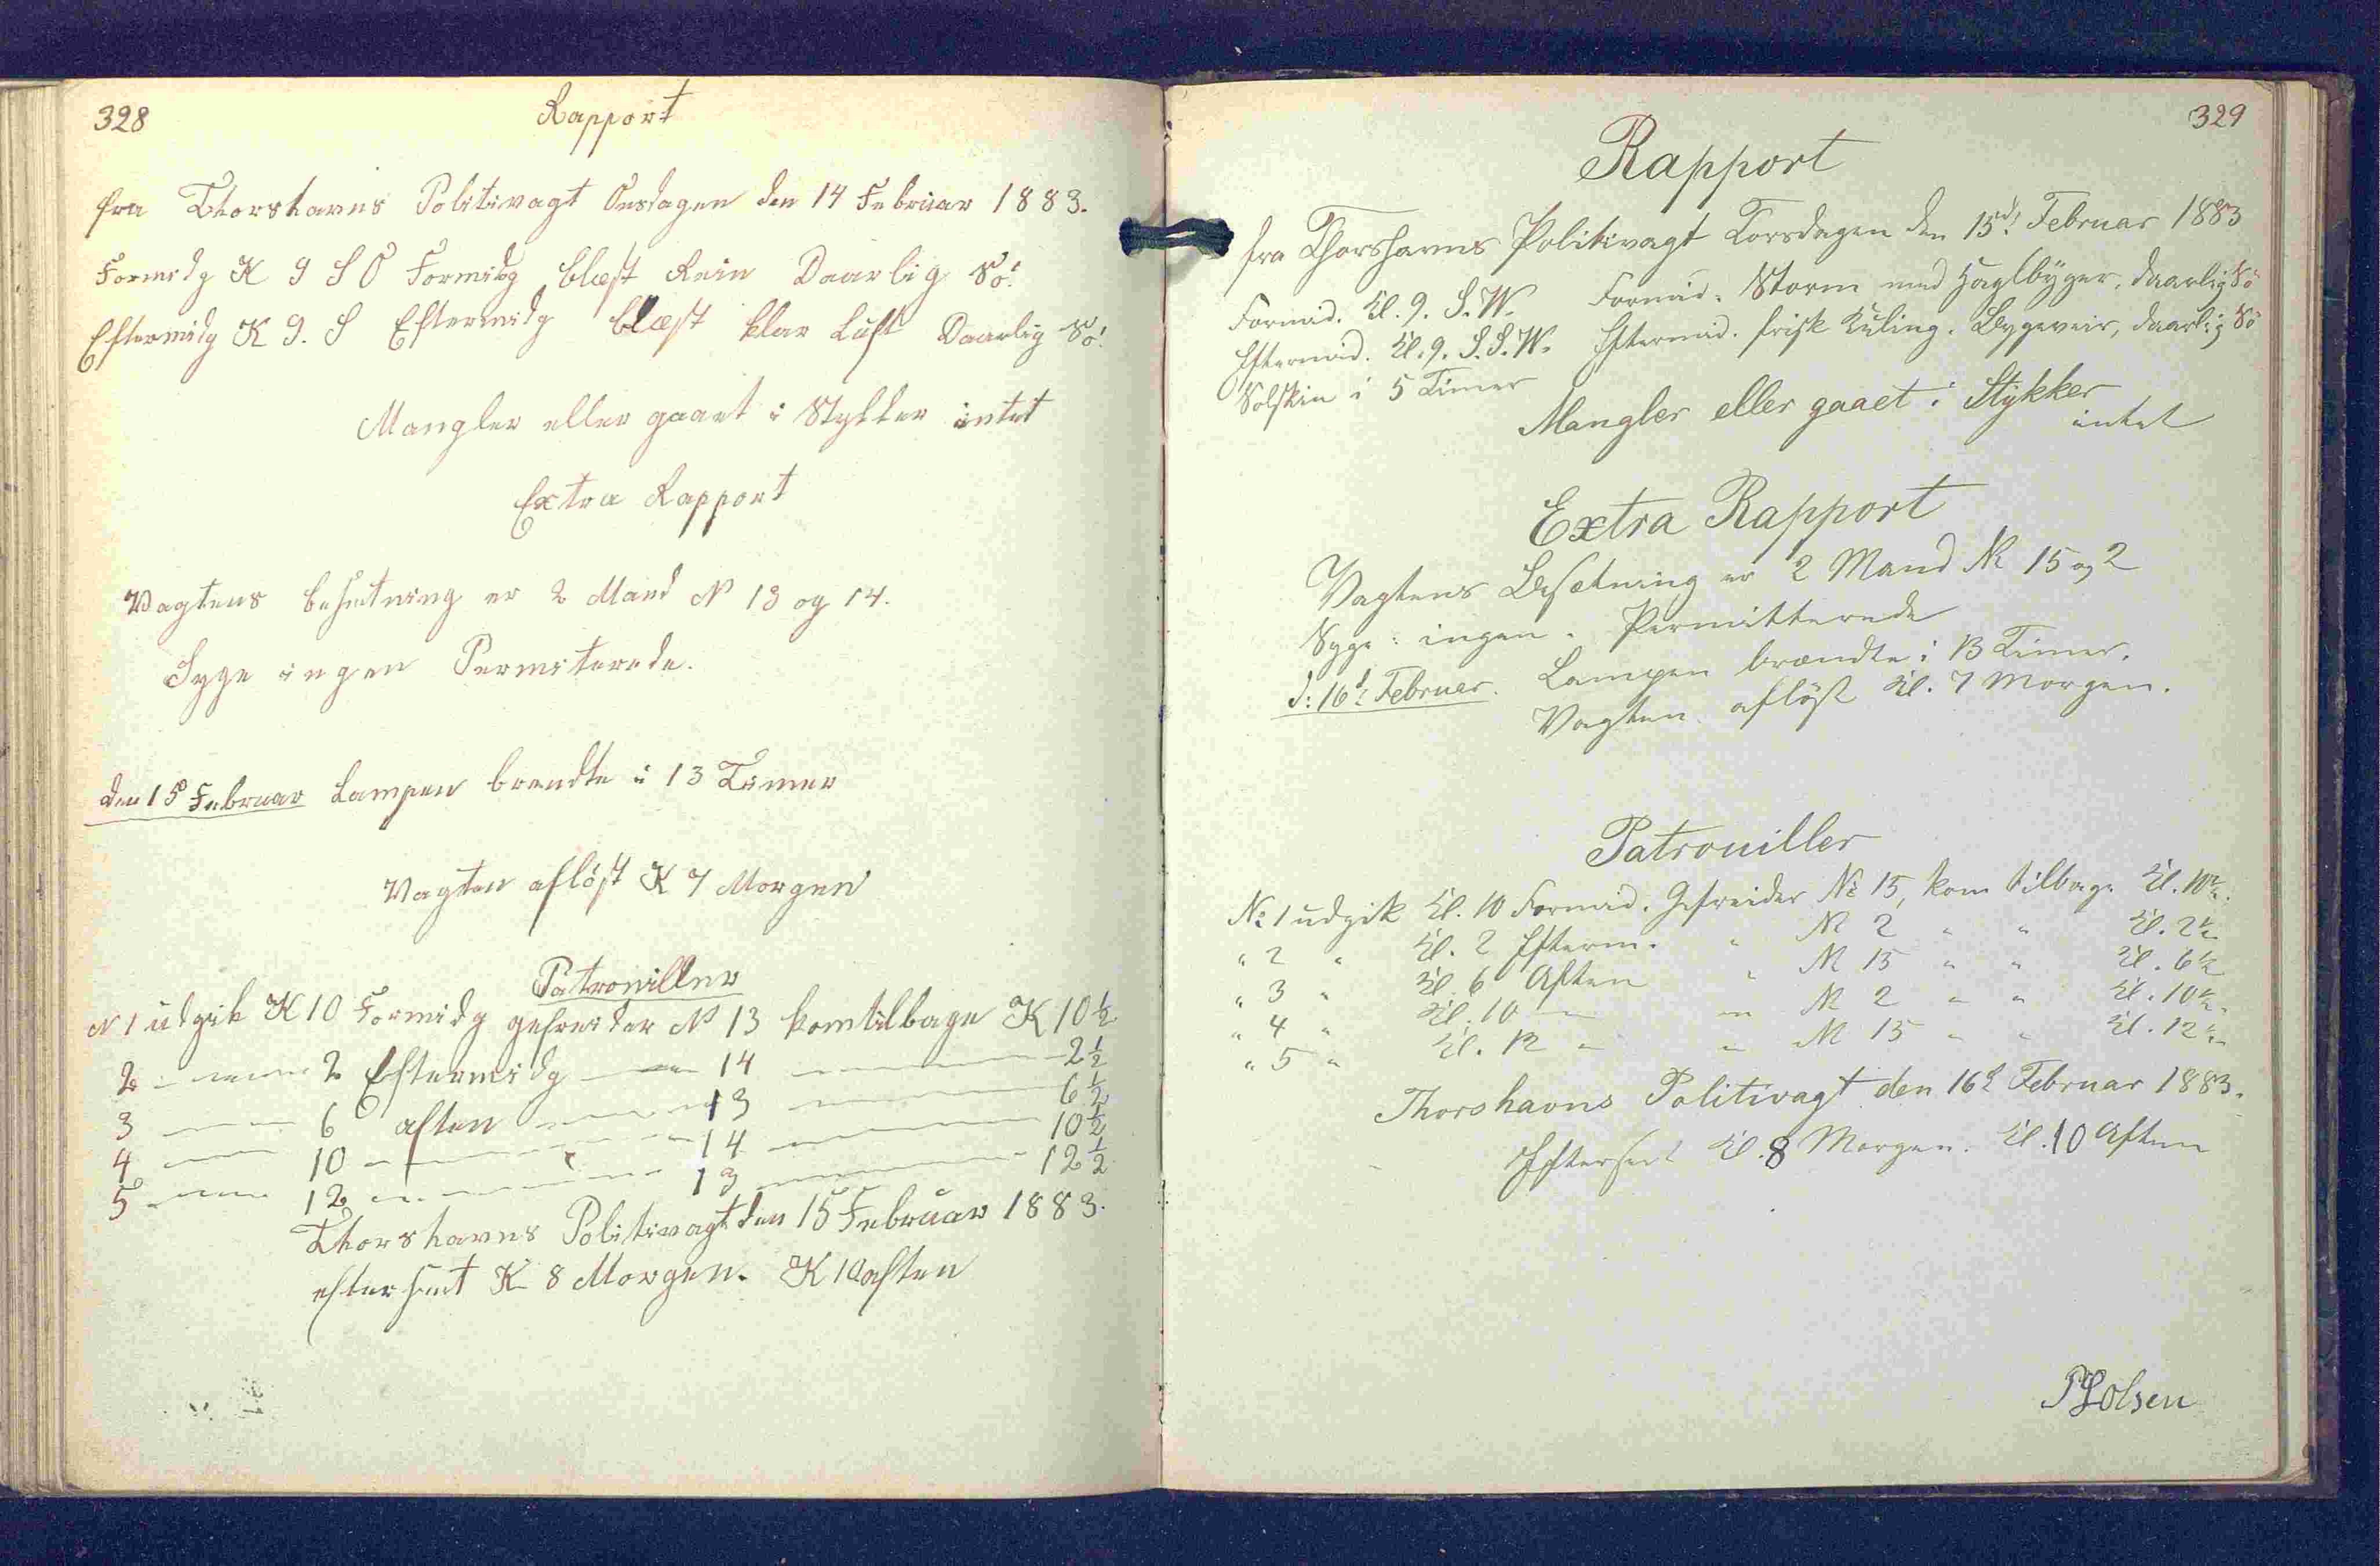 328
Rapport
fra Thorshavns Politivagt Onsdagen den 14 Februar 1883.
Formidg K 9 S O Formidg blæst Rein Daarlig Sö.
Eftermidg K 9. S Eftermidg blæst klar Luft Daarlig Sö.
Mangler eller gaaet i Stykker intet
Extra Rapport
Vagtens besetning er 2 Mand N 13 og 14.
Syge ingen Permiterede.
den 15 Februar Lampen brendte i 13 Timer
Vagten aflöst K 7 Morgen
Patrouiller
N 1 udgik K 10 Formidg gefreider N 13 kom tilbage K 10½
2 — 2 Eftermidg — 14 — 2½
3 — 6 aften — 13 — 6½
4 — 10 — 14 — 10½
5 — 12 — 13 — 12½
Thorshavns Politivagt den 15 Februar 1883.
efterseet K 8 Morgen. K 10 aften
329
Rapport
fra Thorshavns Politivagt Torsdagen den 15d: Februar 1883
Formid. Kl. 9. S.W. Formid. Storm med Haglbyger, daarlig Sö
Eftermid. Kl. 9. S.S.W. Eftermid. frisk Kuling. Bygeveir, daarlig Sö
Solskin i 5 Timer
Mangler eller gaaet i Stykker
intet
Extra Rapport
Vagtens Besetning er 2 Mand No 15 og 2
Syge: ingen. Permitterede
d: 16d: Februar. Lampen brændte i 13 Timer.
Vagten aflöst Kl. 7 Morgen.
Patrouiller
No 1 udgik Kl. 10 Formid. Gefreider No 15, kom tilbage Kl. 10½.
" 2 " Kl. 2 Efterm. " No 2 " " Kl. 2½
" 3 " Kl. 6 Aften " No 15 " " Kl. 6½
" 4 " Kl. 10 — " No 2 " " Kl. 10½
" 5 " Kl. 12 " " No 15 " " Kl. 12½
Thorshavns Politivagt den 16d Februar 1883.
Efterseet Kl. 8 Morgen. Kl. 10 Aften
Olsen